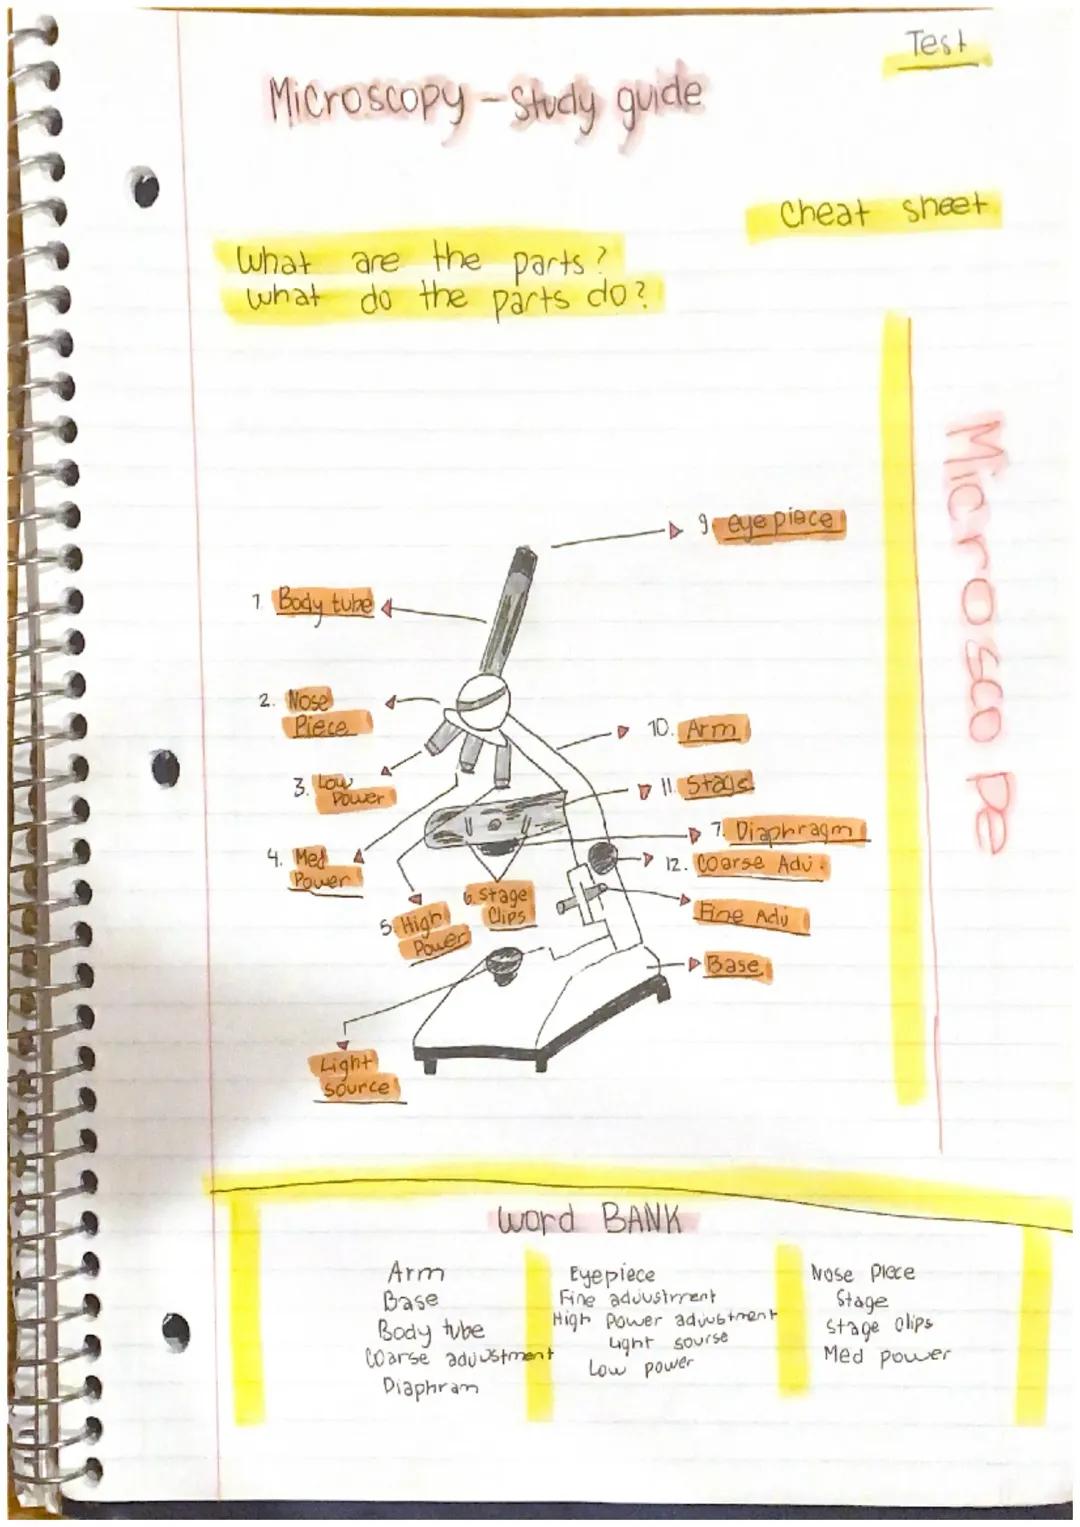 Test
Microscopy - Study guide
Cheat sheet
What are the parts?
What do the parts do?
Microscope
9. eye piece
1. Body tube
2. Nose
Piece
10. Arm
3. Low
Power
11. Stage
7. Diaphragm
4. Med
Power
12. Coarse Adj.
6. Stage
Clips
5. High
Power
Fine Adj
Base
Light
source
word BANK
Arm
Base
Body tube
Coarse adjustment
Diaphram
Eyepiece
Fine adjustment
High Power adjustment
Light sourse
Low power
Nose piece
Stage
Stage clips
Med power